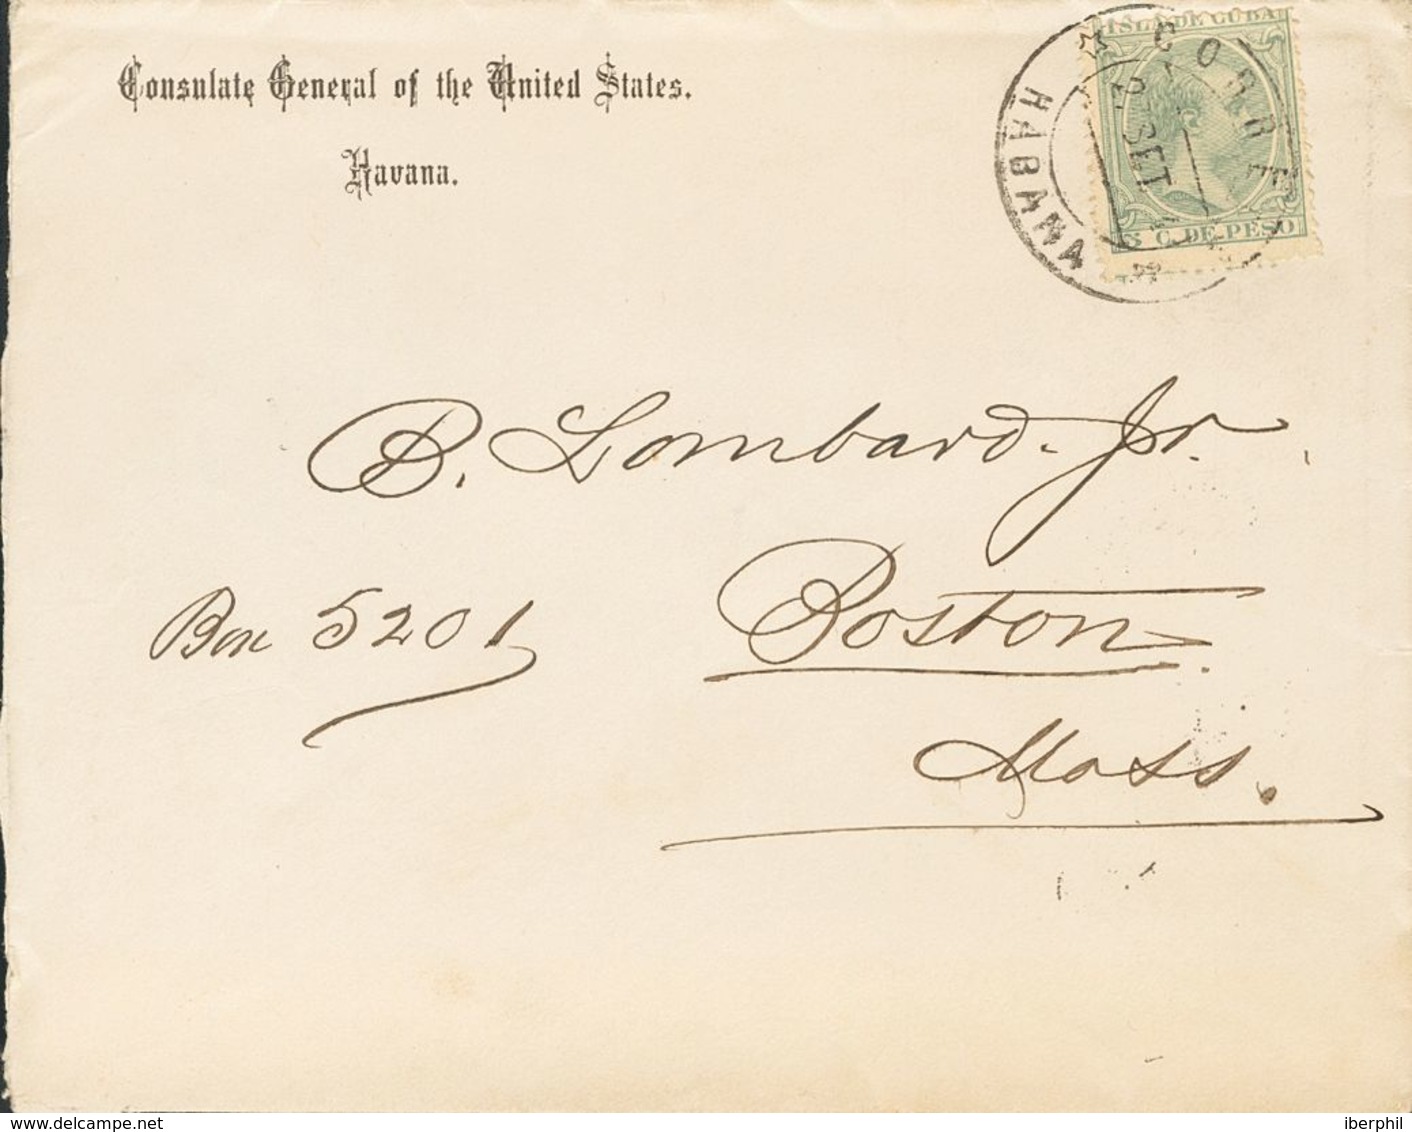 Consulate General of the United States.
Havana.
ISLA DE CUBA
CORRE
HABANA
SET
5 C. DE PESO
B. Lombard. Jr.
Box 5201
Boston.
Mass.
delcampe.net
iberphil